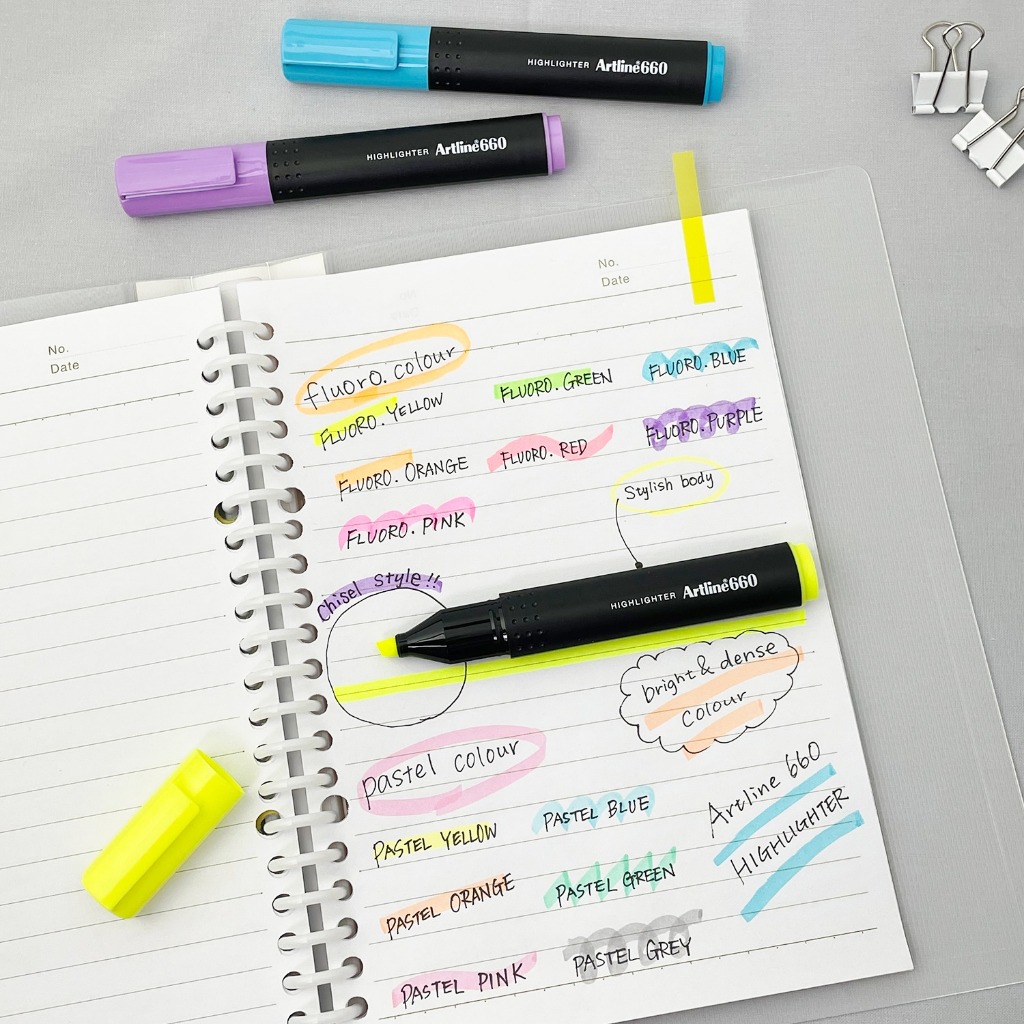 HIGHLIGHTER Artline 660
HIGHLIGHTER Artline 660
No.
Date
No.
Date
fluoro.colour
FLUORO.YELLOW
FLUORO.GREEN
FLUORO.BLUE
FLUORO.ORANGE
FLUORO.RED
FLUORO.PURPLE
FLUORO.PINK
Stylish body
Chisel Style!!
HIGHLIGHTER Artline 660
bright & dense
colour
pastel colour
PASTEL YELLOW
PASTEL BLUE
Artline 660
HIGHLIGHTER
PASTEL ORANGE
PASTEL GREEN
PASTEL PINK
PASTEL GREY